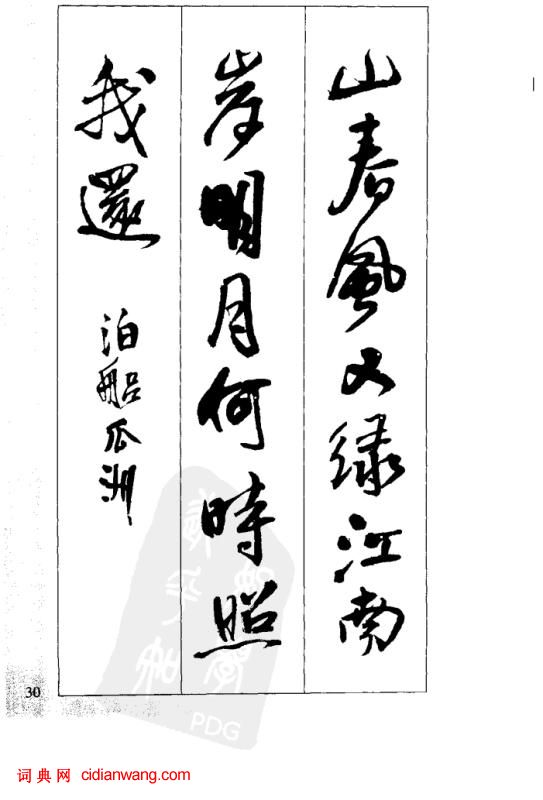 山春風又绿江南
岸明月何時照
我還
泊船瓜洲
30
PDG
词典网 cidianwang.com